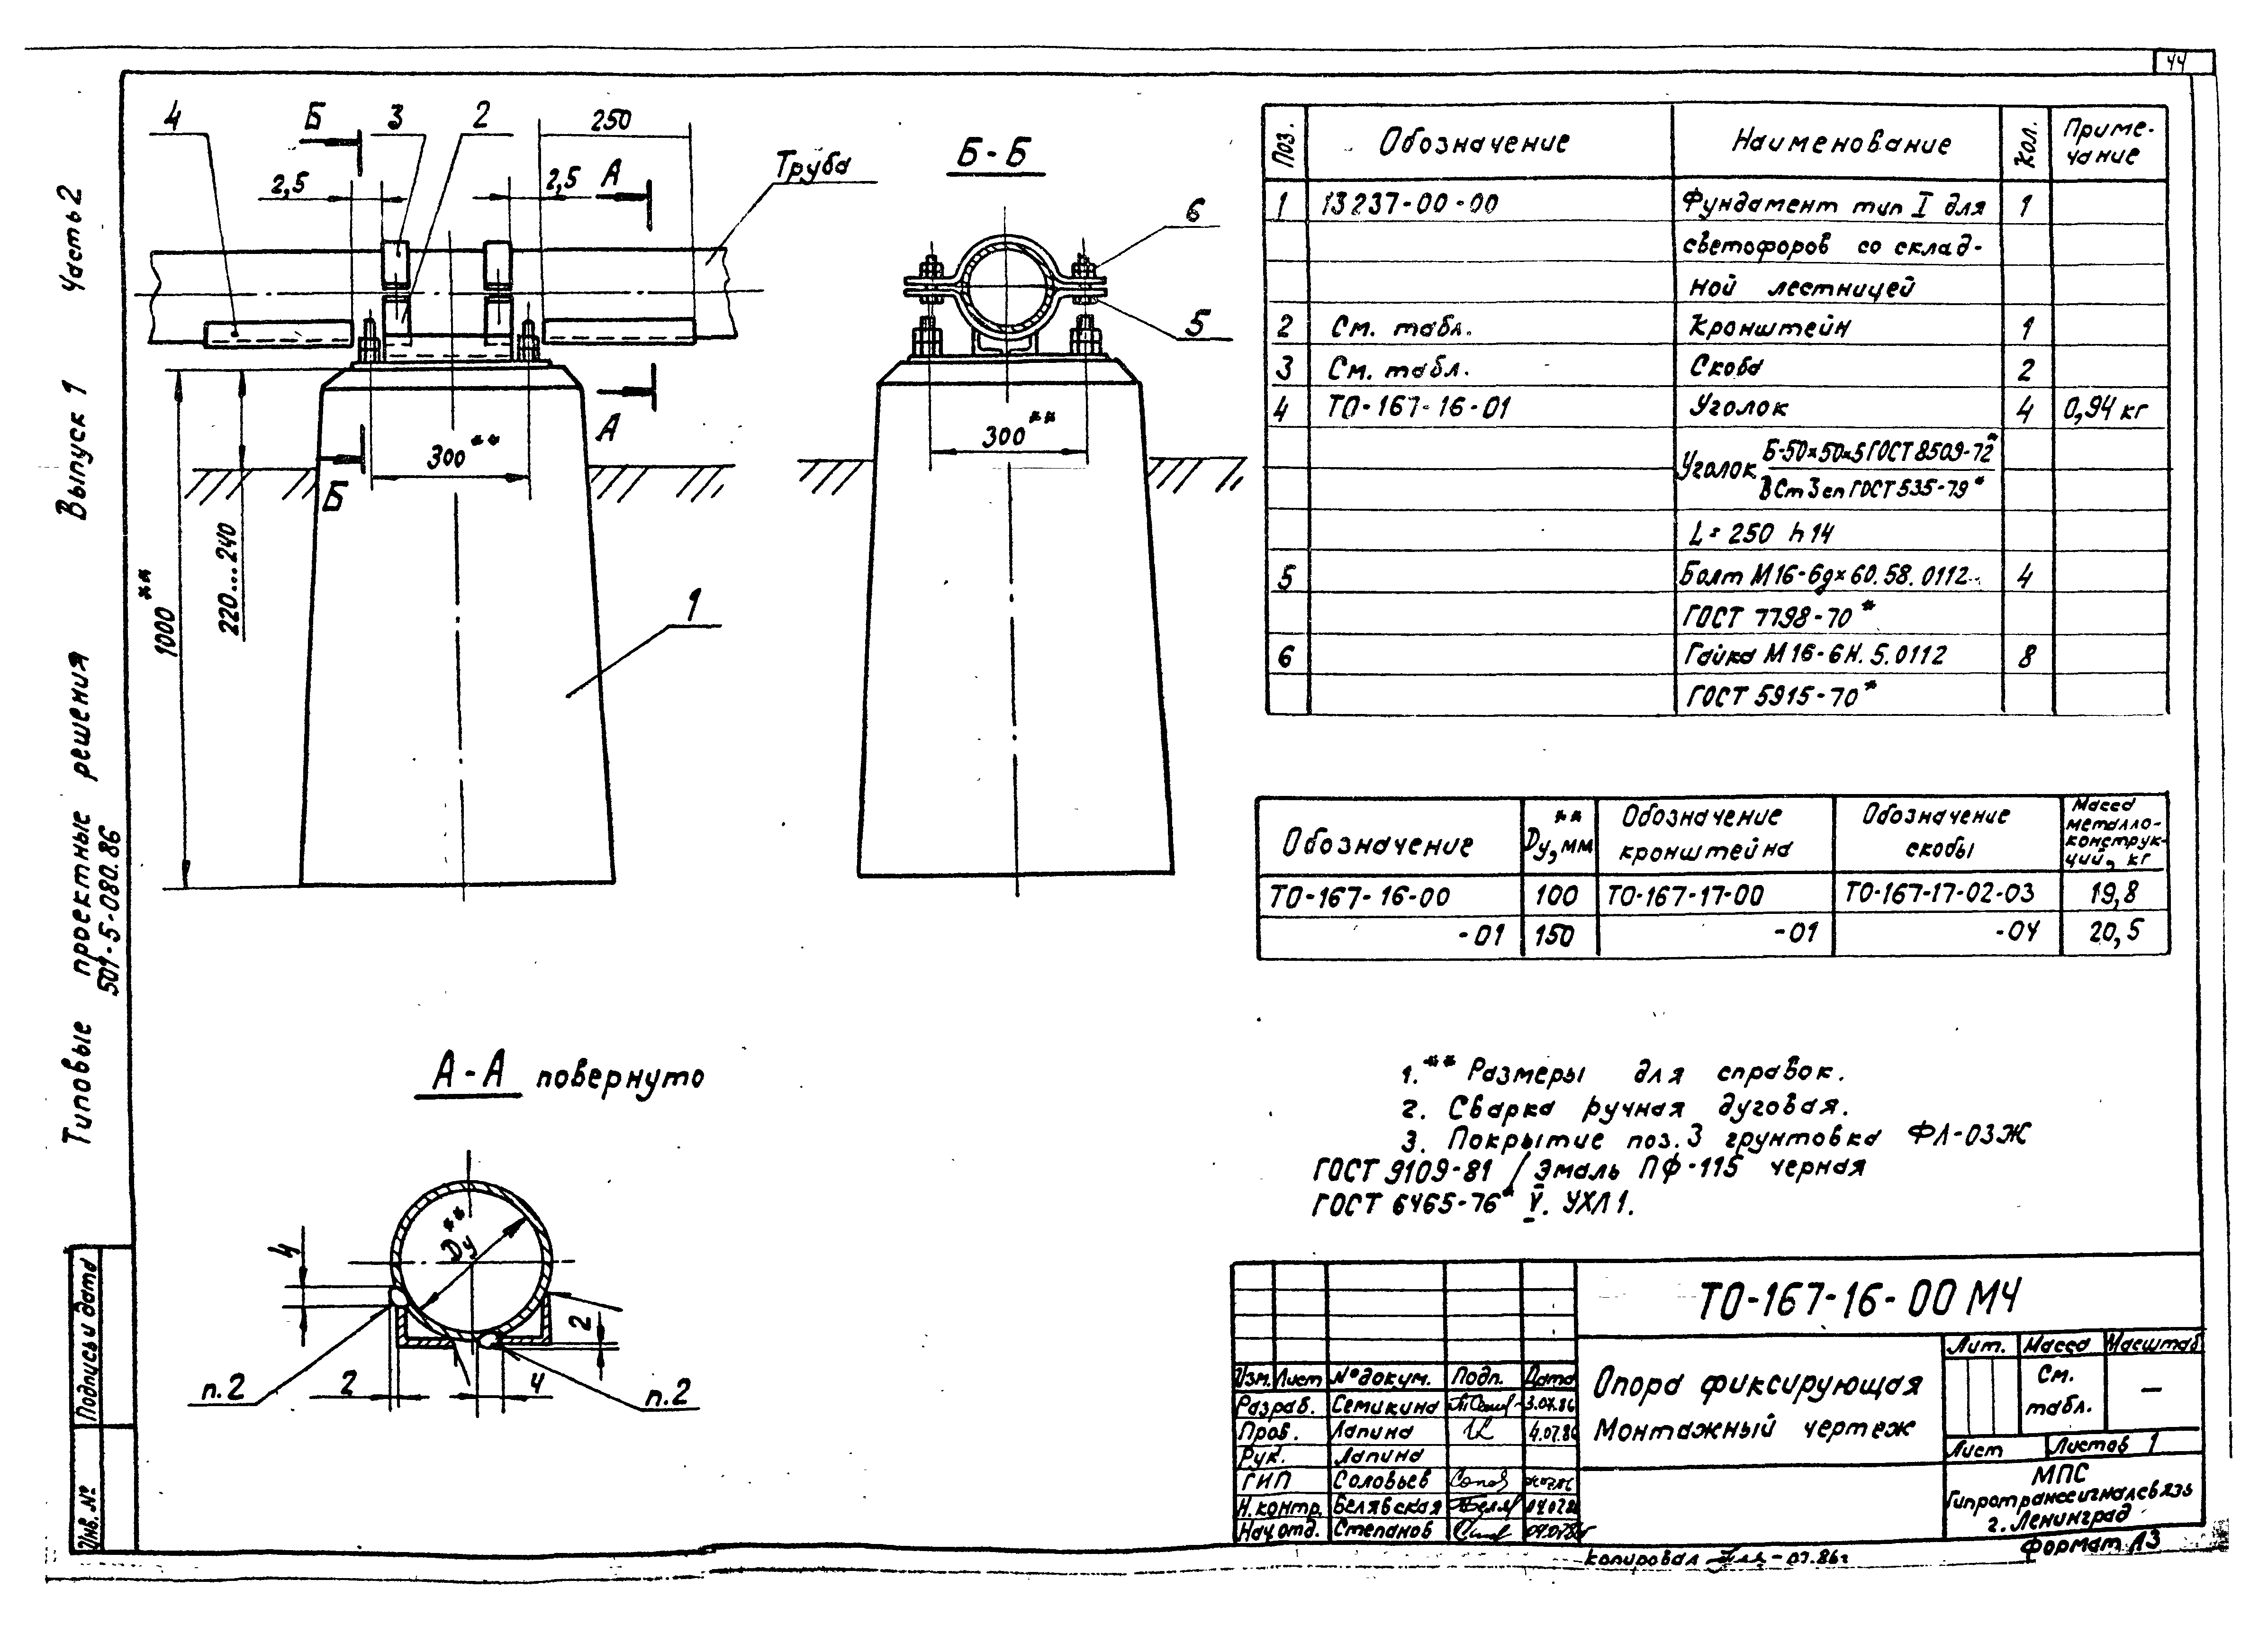 44
Типовые проектные решения Выпуск 1 Часть 2
501-5-080.86
Подпись и дата
Инв. №
4
Б
3
2
250
2,5
2,5
А
Труба
300**
А
Б
1000**
220...240
1
Б-Б
6
5
300**
А-А повернуто
Dу**
4
2
п.2
2
4
п.2
Поз. Обозначение Наименование Кол. Приме-
чание
1 13237-00-00 Фундамент тип I для 1
светофоров со склад-
ной лестницей
2 См. табл. Кронштейн 1
3 См. табл. Скоба 2
4 ТО-167-16-01 Уголок 4 0,94 кг
Уголок Б-50×50×5 ГОСТ 8509-72*
ВСт3сп ГОСТ 535-79*
L=250 h14
5 Болт М16-6g×60.58.0112 4
ГОСТ 7798-70*
6 Гайка М16-6Н.5.0112 8
ГОСТ 5915-70*
Обозначение Dу, мм** Обозначение кронштейна Обозначение скобы Масса металло-конструк-ций, кг
ТО-167-16-00 100 ТО-167-17-00 ТО-167-17-02-03 19,8
-01 150 -01 -04 20,5
1.** Размеры для справок.
2. Сварка ручная дуговая.
3. Покрытие поз. 3 грунтовка ФЛ-03Ж
ГОСТ 9109-81 / Эмаль ПФ-115 черная
ГОСТ 6465-76* V. УХЛ1.
ТО-167-16-00 МЧ
Опора фиксирующая
Монтажный чертеж
Лит. Масса Масштаб
См.
табл. —
Лист Листов 1
МПС
Гипротранссигналсвязь
г. Ленинград
Изм. Лист № докум. Подп. Дата
Разраб. Семикина 3.07.86
Пров. Лапина 4.07.86
Рук. Лапина
ГИП Соловьев
Н.контр. Белявская
Нач.отд. Степанов
Копировал -07.86г
Формат А3